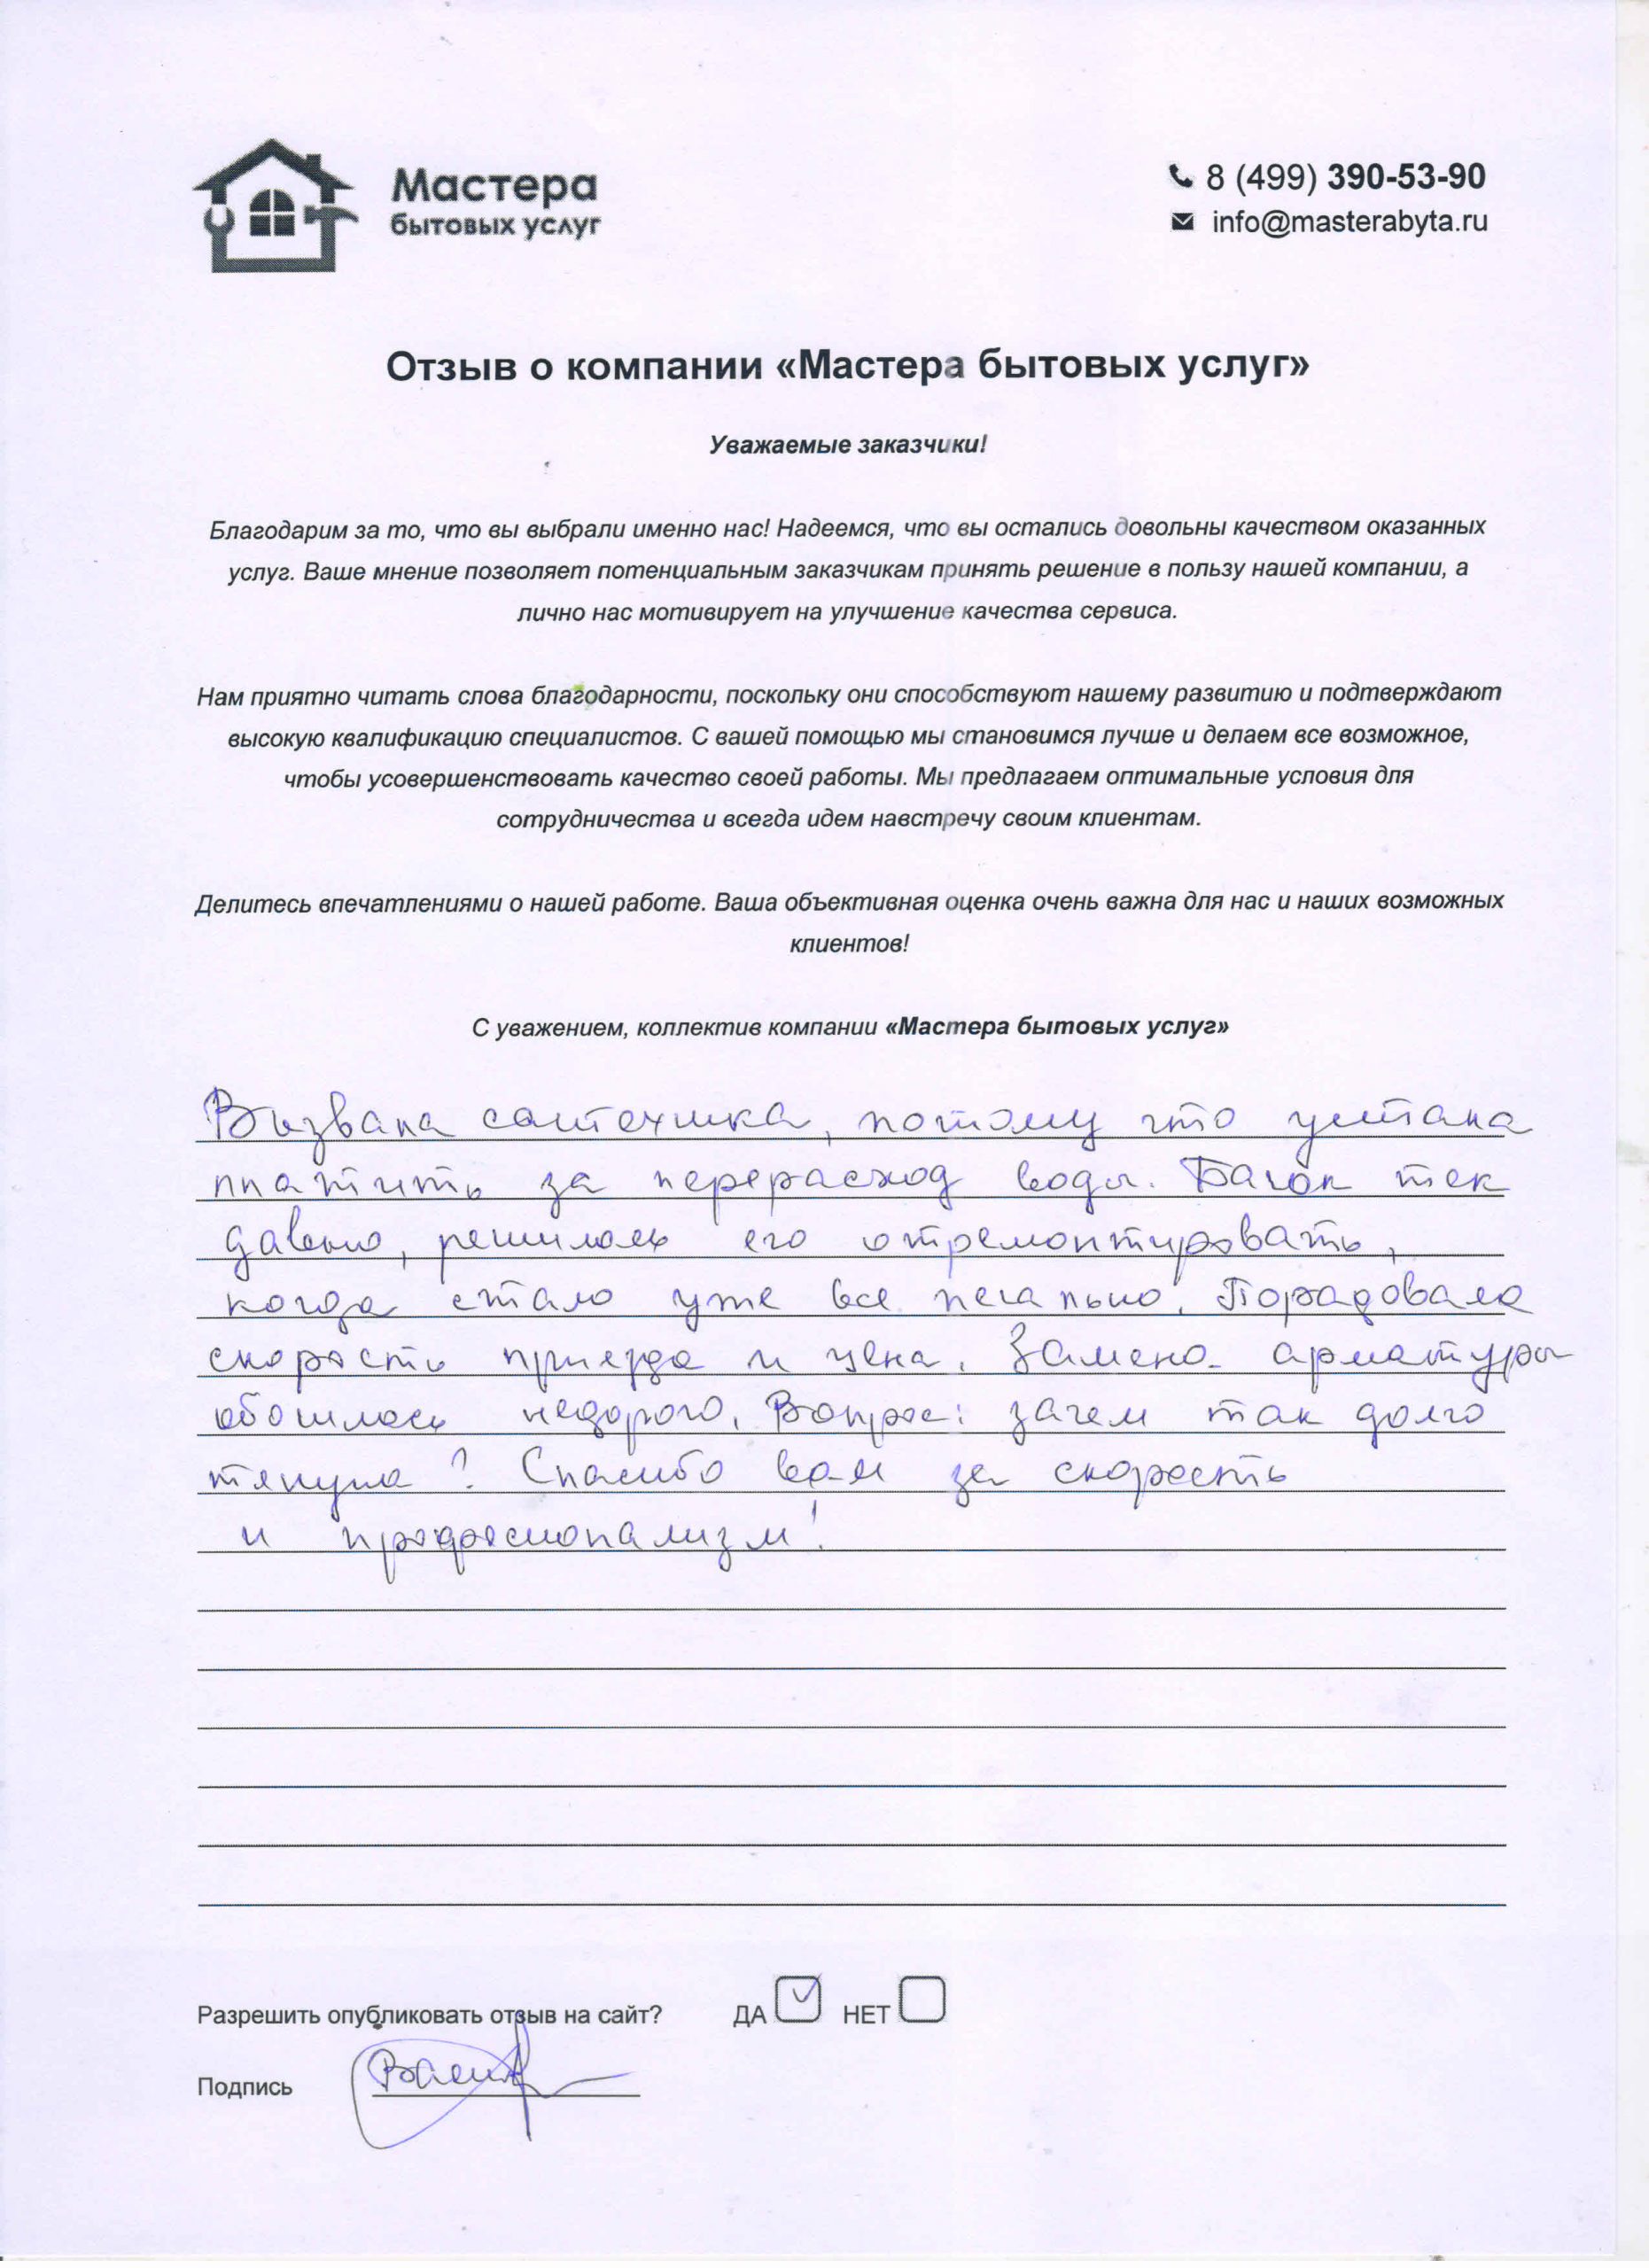 Мастера
бытовых услуг
8 (499) 390-53-90
info@masterabyta.ru
Отзыв о компании «Мастера бытовых услуг»
Уважаемые заказчики!
Благодарим за то, что вы выбрали именно нас! Надеемся, что вы остались довольны качеством оказанных
услуг. Ваше мнение позволяет потенциальным заказчикам принять решение в пользу нашей компании, а
лично нас мотивирует на улучшение качества сервиса.
Нам приятно читать слова благодарности, поскольку они способствуют нашему развитию и подтверждают
высокую квалификацию специалистов. С вашей помощью мы становимся лучше и делаем все возможное,
чтобы усовершенствовать качество своей работы. Мы предлагаем оптимальные условия для
сотрудничества и всегда идем навстречу своим клиентам.
Делитесь впечатлениями о нашей работе. Ваша объективная оценка очень важна для нас и наших возможных
клиентов!
С уважением, коллектив компании «Мастера бытовых услуг»
Вызвала сантехника, потому что устала
платить за перерасход воды. Бачок тек
давно, решилась его отремонтировать,
когда стало уже все печально. Порадовала
скорость приезда и цена. Замена арматуры
обошлась недорого. Вопрос: зачем так долго
тянула? Спасибо вам за скорость
и професионализм!
Разрешить опубликовать отзыв на сайт? ДА НЕТ
Подпись